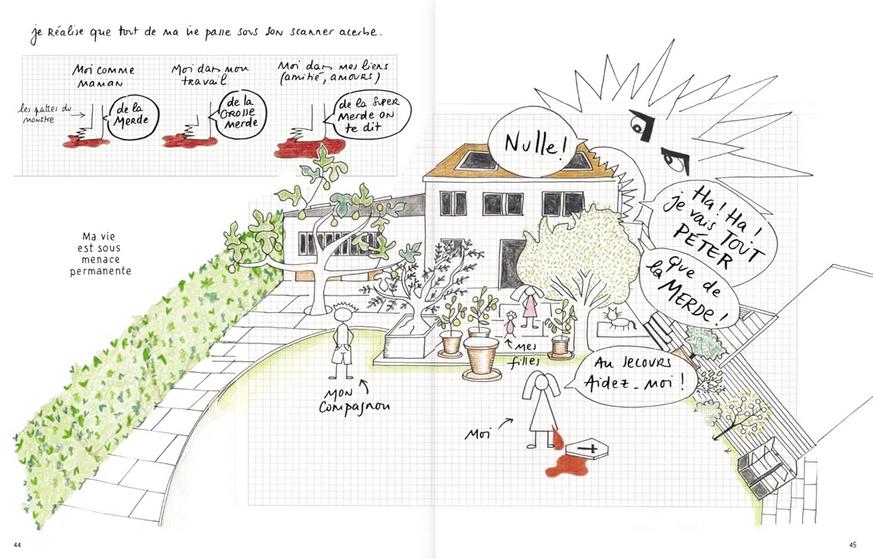 je Réalise que tout de ma vie passe sous son scanner acerbe.
Moi comme
maman
les pattes du
monstre
de la
MERDE
Moi dans mon
travail
de la
GROSSE
merde
Moi dans mes liens
(amitié, amours)
de la SUPER
Merde ON
te dit
Ma vie
est sous
menace
permanente
Nulle!
Ha! Ha!
je vais TOUT
PÉTER
que de
la MERDE!
mes
filles
Au secours
Aidez-moi!
MON
Compagnon
Moi
44
45